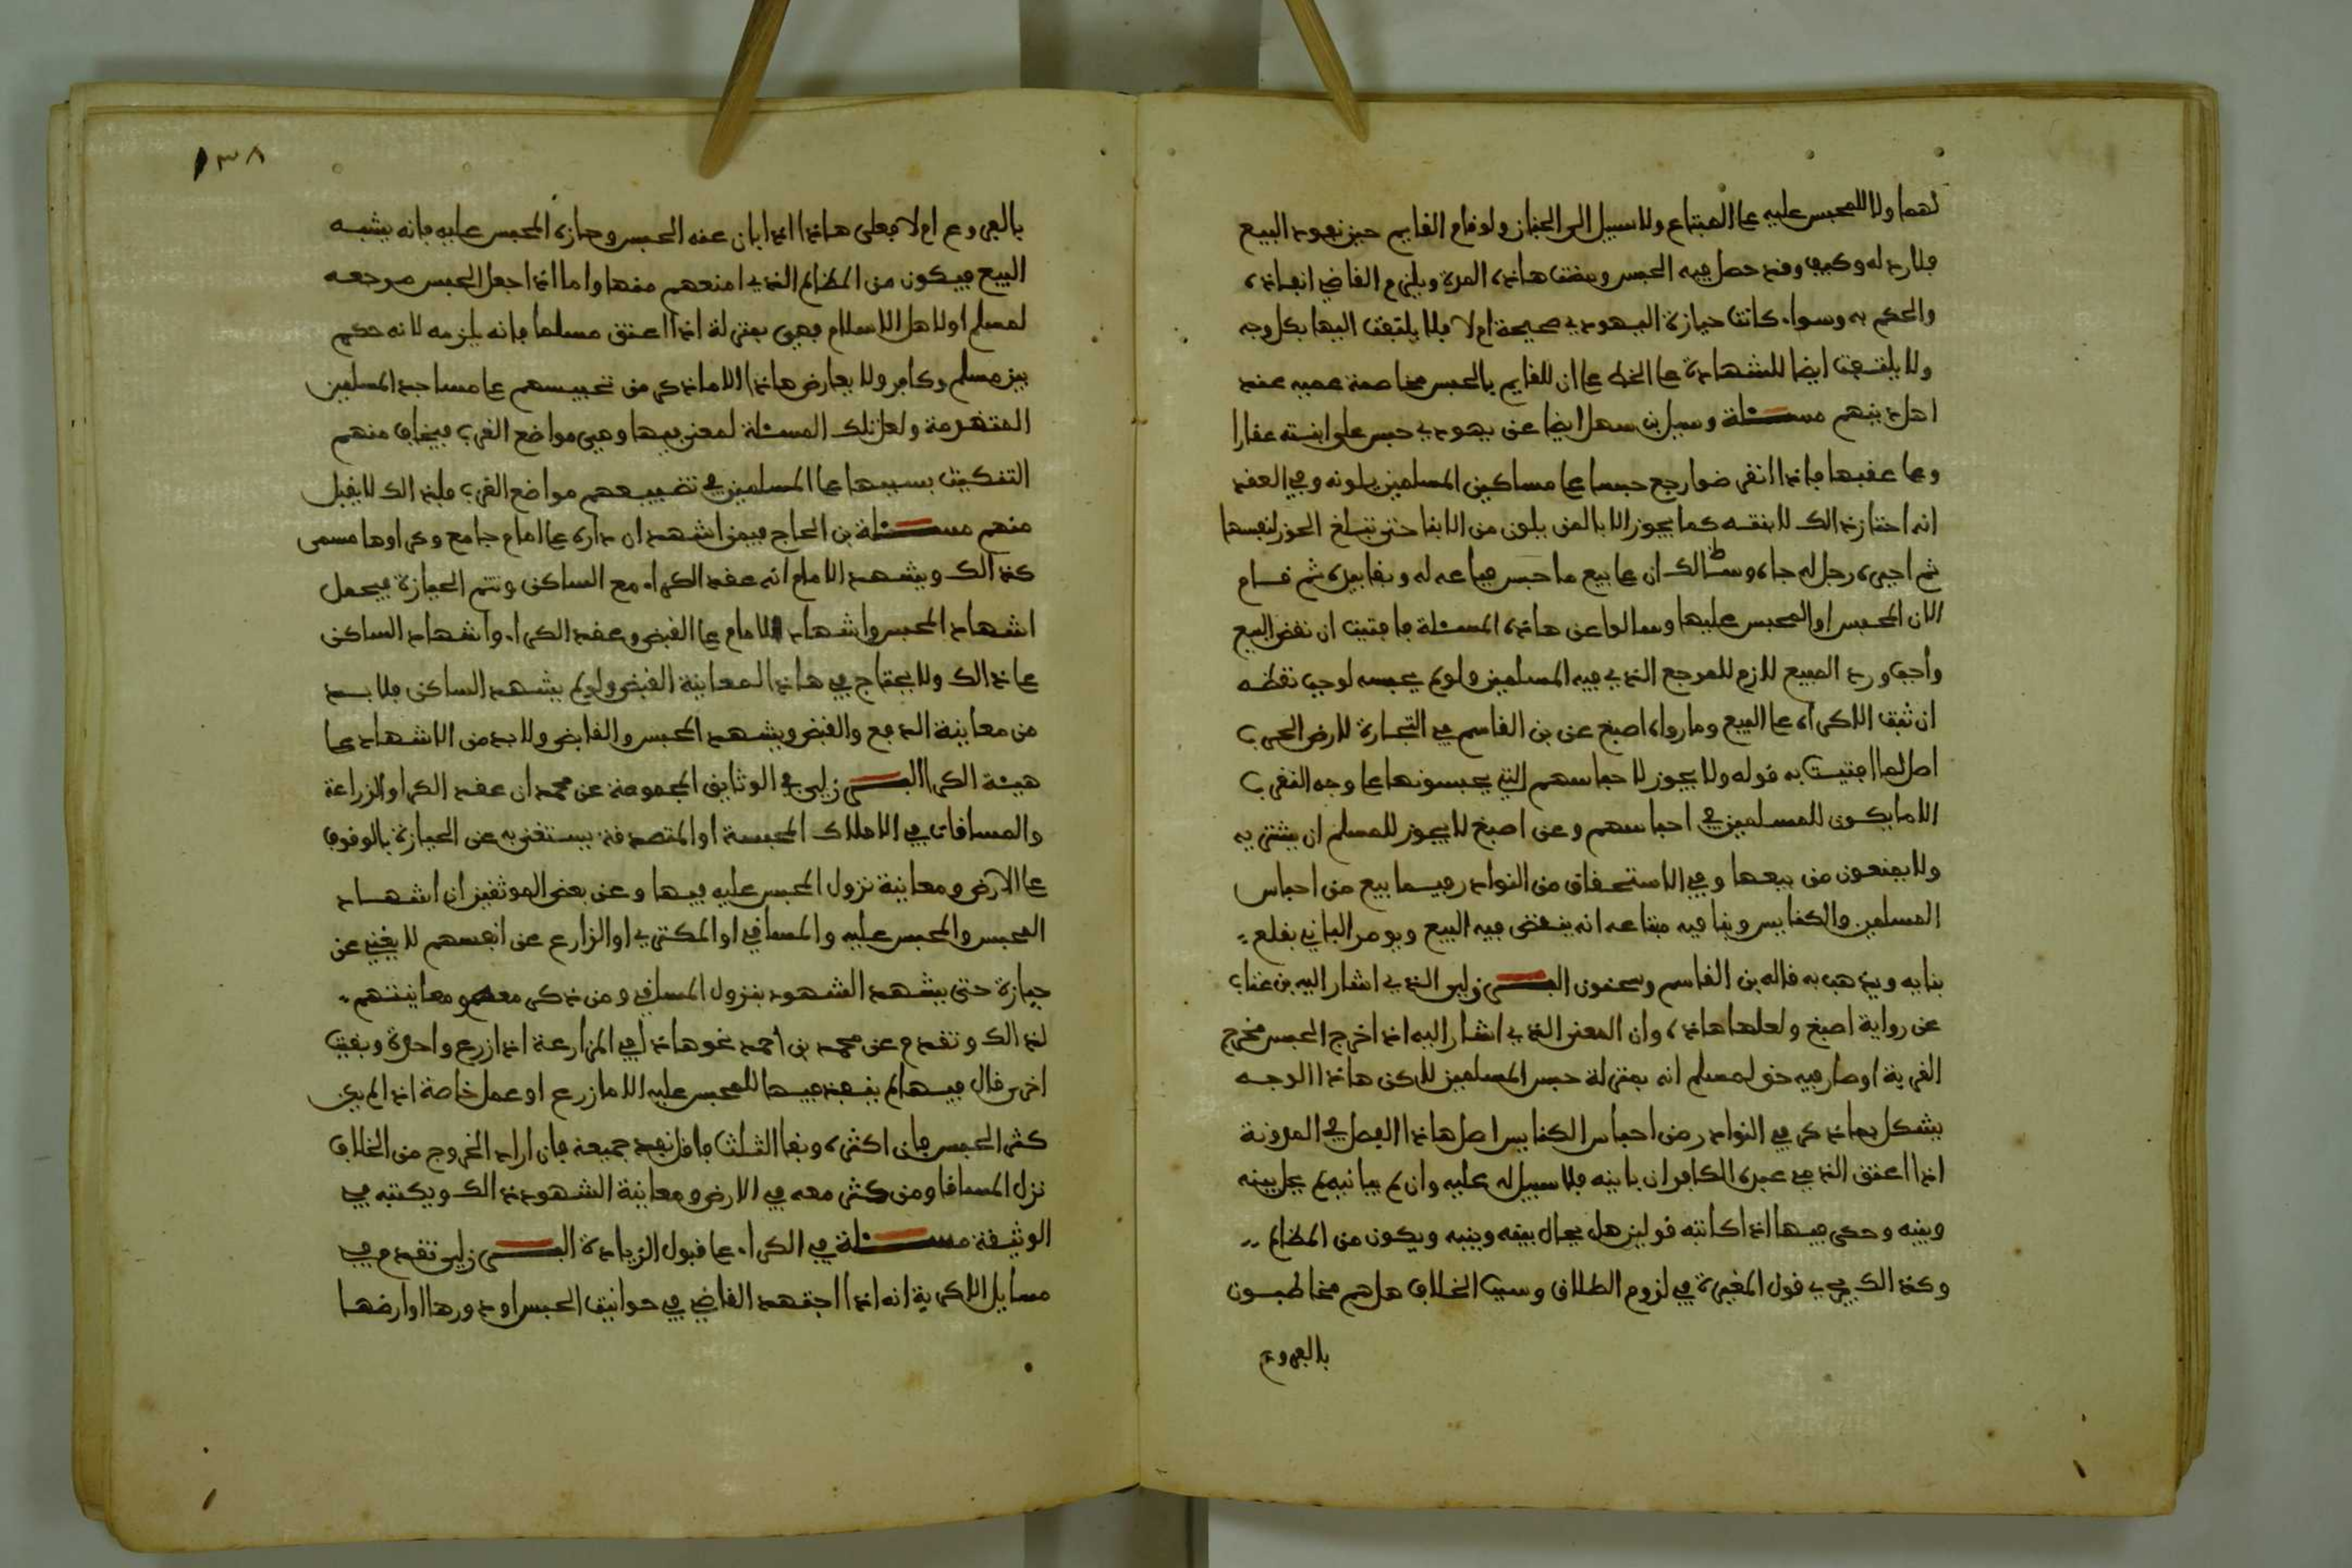 لهما ولا للمحبس عليه على المبتاع ولا سبيل الى الخيار ولو قام القايم حين نفوذ البيع
فلا رد له وكيف وقد حصل فيه الحبس ومضت هاذه المدة ويلزم القاضي انفاذه
والحكم به وسواء كانت حيازة اليهودي صحيحة ام لا فلا يلتفت اليها بكل وجه
ولا يلتفت ايضا للشهادة على الخط على ان للقايم بالحبس مخاصمة عميه عند
اهل دينهم مسئلة وسيل بن سهل ايضا عن يهودي حبس على ابنته عقارا
وعلى عقبها فاذا انقرضوا رجع حبسا على مساكين المسلمين بلونه وفي العقد
انه احتاز ذالك لابنته كما يجوز الابا لمن يلون من الابنا حتى تبلغ الحوز لنفسها
ثم اجبره رجل له جاه وسلطان على بيع ما حبس فباعه له وتقابيره ثم قام
الان المحبس او المحبس عليها وسالوا عن هاذه المسئلة فافتيت ان نقض البيع
واجب ورد المبيع لازم للمرجع الذي فيه المسلمين ولو لم يحبسه لوجب نقضه
ان ثبت الاكراه على البيع وما رواه اصبغ عن بن القاسم في التجارة لارض الحرب
اصل لما افتيت به قوله ولا يجوز لاحباسهم التي يحبسونها على وجه التقرب
الا ما يكون للمسلمين في احباسهم وعن اصبغ لا يجوز للمسلم ان يشتريه
ولا يمنعون من بيعها وفي الاستحقاق من النوادر فيما بيع من احباس
المسلمين والكنايس وبنا فيه مبتاعه انه ينقض فيه البيع ويومر الباني بقلع
بنايه ويذهب به قاله بن القاسم وسحنون البــرزلي الذي اشار اليه بن عتاب
عن رواية اصبغ ولعلها هاذه وان المعنى الذي اشار اليه اذا خرج الحبس مخرج
القربة او صار فيه حق لمسلم انه بمنزلة حبس المسلمين لاكن هاذا الوجه
يشكل بما ذكر في النوادر من احباس الكنايس اصل هاذا الفصل في المدونة
اذا اعتق الذمي عبده الكافر ان بانه فلا سبيل له عليه وان لم يبانيه لم يحل بينه
وبينه وحكى فيها اذا كاتبه قولين هل يحال بينه وبينه ويكون من المظالم
وكذالك يجري قول المغيرة في لزوم الطلاق وسبب الخلاف هل هم مخاطبون
بالفروع
١٣٨
بالفروع ام لا فعلى هاذا اذا بان عنه الحبس وحازه المحبس عليه فانه يشبه
البيع فيكون من المظالم الذي امنعهم منها واما اذا جعل الحبس مرجعه
لمسلم او لاهل الاسلام فهي بمنزلة اذا اعتق مسلما فانه يلزمه لانه حكم
بين مسلم وكافر ولا يعارض هاذا الا ما ذكر من تحبيسهم على مساجد المسلمين
المتهدمة ولعل تلك المسئلة لمعنى فيها وهي مواضع القرب فيخاف منهم
التنكيت بسببها على المسلمين في تضييعهم مواضع القرب فلذالك لا يقبل
منهم مسئلة بن الحاج فيمن اشهد ان داره على امام جامع وكراوها مسمى
كذالك ويشهد الامام انه عقد الكراء مع الساكن وتتم الحيازة فيحمل
اشهاد المحبس واشهاد الامام على القبض وعقد الكراء واشهاد الساكن
على ذالك ولا يحتاج في هاذا لمعاينة القبض ولو لم يشهد الساكن فلا بد
من معاينة الدفع والقبض ويشهد المحبس والقابض ولا بد من الاشهاد على
هيئة الكرا البــرزلي في الوثايق المجموعة عن محمد ان عقد الكرا والزراعة
والمساقات في الاملاك المحبسة او المتصدقة يستغنى به عن الحيازة بالوقوف
على الارض ومعاينة نزول المحبس عليه فيها وعن بعض الموثقين ان اشهاد
المحبس والمحبس عليه والمساقي او المكتري او الزارع عن انفسهم لا يغني عن
حيازة حتى يشهد الشهود بنزول المساقي ومن ذكر معه ومعاينتهم
لذالك وتقدم عن محمد بن احمد نحو هاذا في المزارعة اذا زرع واحدة وبقيت
اخرى قال فيها لم ينفذ فيها للمحبس عليه الا ما زرع او عمل خاصة اذا لم يكن
كثر الحبس فان اكثره وبقا الثلث فاقل نفذ جميعه فان اراد الخروج من الخلاف
نزل المساقا ومن كثر معه في الارض ومعاينة الشهود ذالك ويكتبه في
الوثيقة مسئلة في الكراء على قبول الزيادة البــرزلي تقدم في
مسايل الاكرية انه اذا اجتهد القاضي في حوانيت الحبس او دورها او ارضها